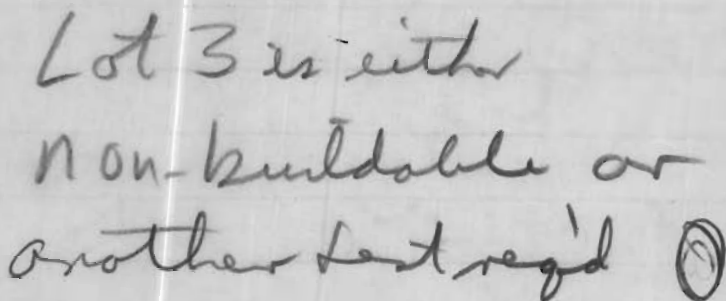 Lot 3 is either
non-buildable or
another test req'd